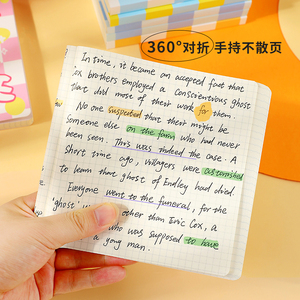 360°对折 手持不散页
In time, it became an accepted fact that
Cox brothers employed a conscientious ghost
that did most of their work for them.
No one suspected that there might be
someone else on the farm who had never
been seen. This was indeed the case. A
short time ago, villagers were astonished
to learn that ghost of Endley had died.
Everyone went to the funeral, for the
'ghost' other than Eric Cox, a
who was supposed to have
a young man.